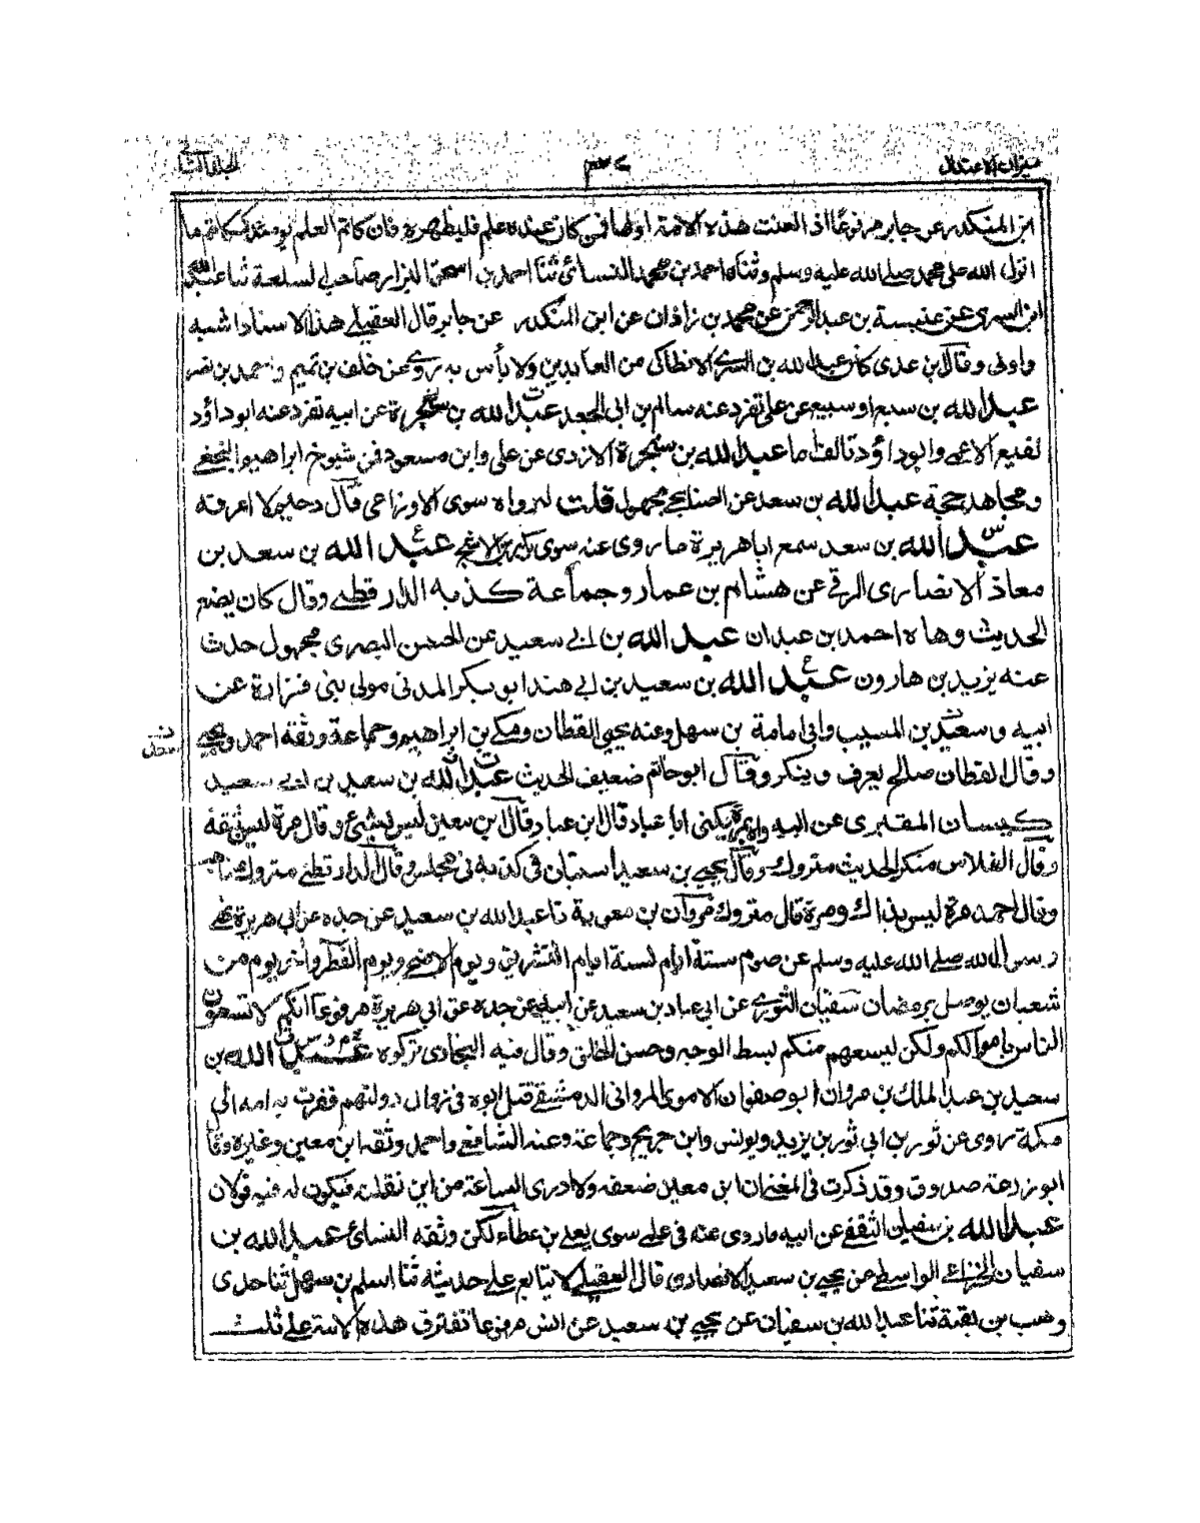 ميزان الاعتدال
المجلد الثانى
ابن المنكدر عن جابر مرفوعًا اذا لعنت هذه الامة اولها فمن كان عنده علم فليظهره فان كاتم العلم يومئذ ككاتم ما
انزل الله على محمد صلے الله عليه وسلم وثناه احمد بن محمد النسائى ثنا احمد بن اسحق البزار صاحب لسلعة ثنا عبد الله
ابن السرى عن عنبسة بن عبد الرحمن عن محمد بن زاذان عن ابن المنكدر عن جابر قال العقيلے هذا الاسناد اشبه
واولى وقال ابن عدى كان عبد الله بن السرے الانطاكى من العابدين ولا بأس به روے عن خلف بن تميم واحمد بن نصر
عبد الله بن سبع او سبيع عن على تفرد عنه سالم بن ابى الجعد عبد الله بن سخبرة عن ابيه تفرد عنه ابو داؤد
نفيع الاعمى وابو داؤد تالف اما عبد الله بن سخبرة الازدى عن على وابن مسعود فمن شيوخ ابراهيم النخعے
ومجاهد حجة عبد الله بن سعد عن الصنابحے مجهول قلت لم رواه سوى الاوزاعى قال دحيم لا اعرفه
عبد الله بن سعد سمع ابا هريرة ما روى عنه سوى بكير بن الاشج عبد الله بن سعد بن
معاذ الانصارى الرقى عن هشام بن عمار وجماعة كذبه الدار قطنے وقال كان يضع
الحديث وهاه احمد بن عبدان عبد الله بن ابے سعيد عن الحسن البصرى مجهول حدث
عنه يزيد بن هارون عبد الله بن سعيد بن ابے هند ابو بكر المدنى مولى بنى فزارة عن
ابيه وسعيد بن المسيب وابى امامة بن سهل وعنه يحيى القطان ومكے بن ابراهيم وجماعة وثقه احمد ويحيے
وقال القطان صالح يعرف وينكر وقال ابو حاتم ضعيف الحديث عبد الله بن سعيد بن ابے سعيد
كيسان المقبرى عن ابيه يكنى ابا عباد قال ابن عباد قال ابن معين ليس بشئ وقال مرة ليس بثقة
وقال الفلاس منكر الحديث متروك وقال يحيے بن سعيد استبان لى كذبه فى مجلس وقال الدار قطنے متروك
وقال احمد مرة ليس بذاك ومرة قال متروك مروان بن معوية ثنا عبد الله بن سعيد عن جده عن ابى هريرة نهى
رسول الله صلے الله عليه وسلم عن صوم ستة ايام لسنة ايام التشريق ويوم الاضحے ويوم الفطر واخر يوم من
شعبان يوصل برمضان سفيان الثورے عن ابى عباد بن سعيد عن ابيه عن جده عن ابى هريرة مرفوعا انكم لا تسعون
الناس باموالكم ولكن ليسعهم منكم بسط الوجه وحسن الخلق وقال فيه البخارى تركوه عبد الله بن
سعيد بن عبد الملك بن مروان ابو صفوان الاموى المروانى الدمشقے قتل ابوه فى زوال دولتهم ففرت به امه الى
مكة روى عن ثور بن ابى ثور بن يزيد ويونس وابن جريج وجماعة وعنه الشافعے واحمد وثقه ابن معين وغيره وقال
ابو زرعة صدوق وقد ذكرت فى المغنى ان ابن معين ضعفه ولا ادرى الساعة من اين نقلته فيكون له فيه قولان
عبد الله بن سفيان الثقفے عن ابيه ما روى عنه فى علمے سوى يعلے بن عطاء لكن وثقه النسائى عبد الله بن
سفيان الخزاعے الواسطے عن يحيے بن سعيد الانصارى قال العقيلے لا يتابع على حديثه ثنا اسلم بن سهل ثنا جدى
وهب بن بقية ثنا عبد الله بن سفيان عن يحيے بن سعيد عن انس مرفوعا تفترق هذه الامة على ثلث